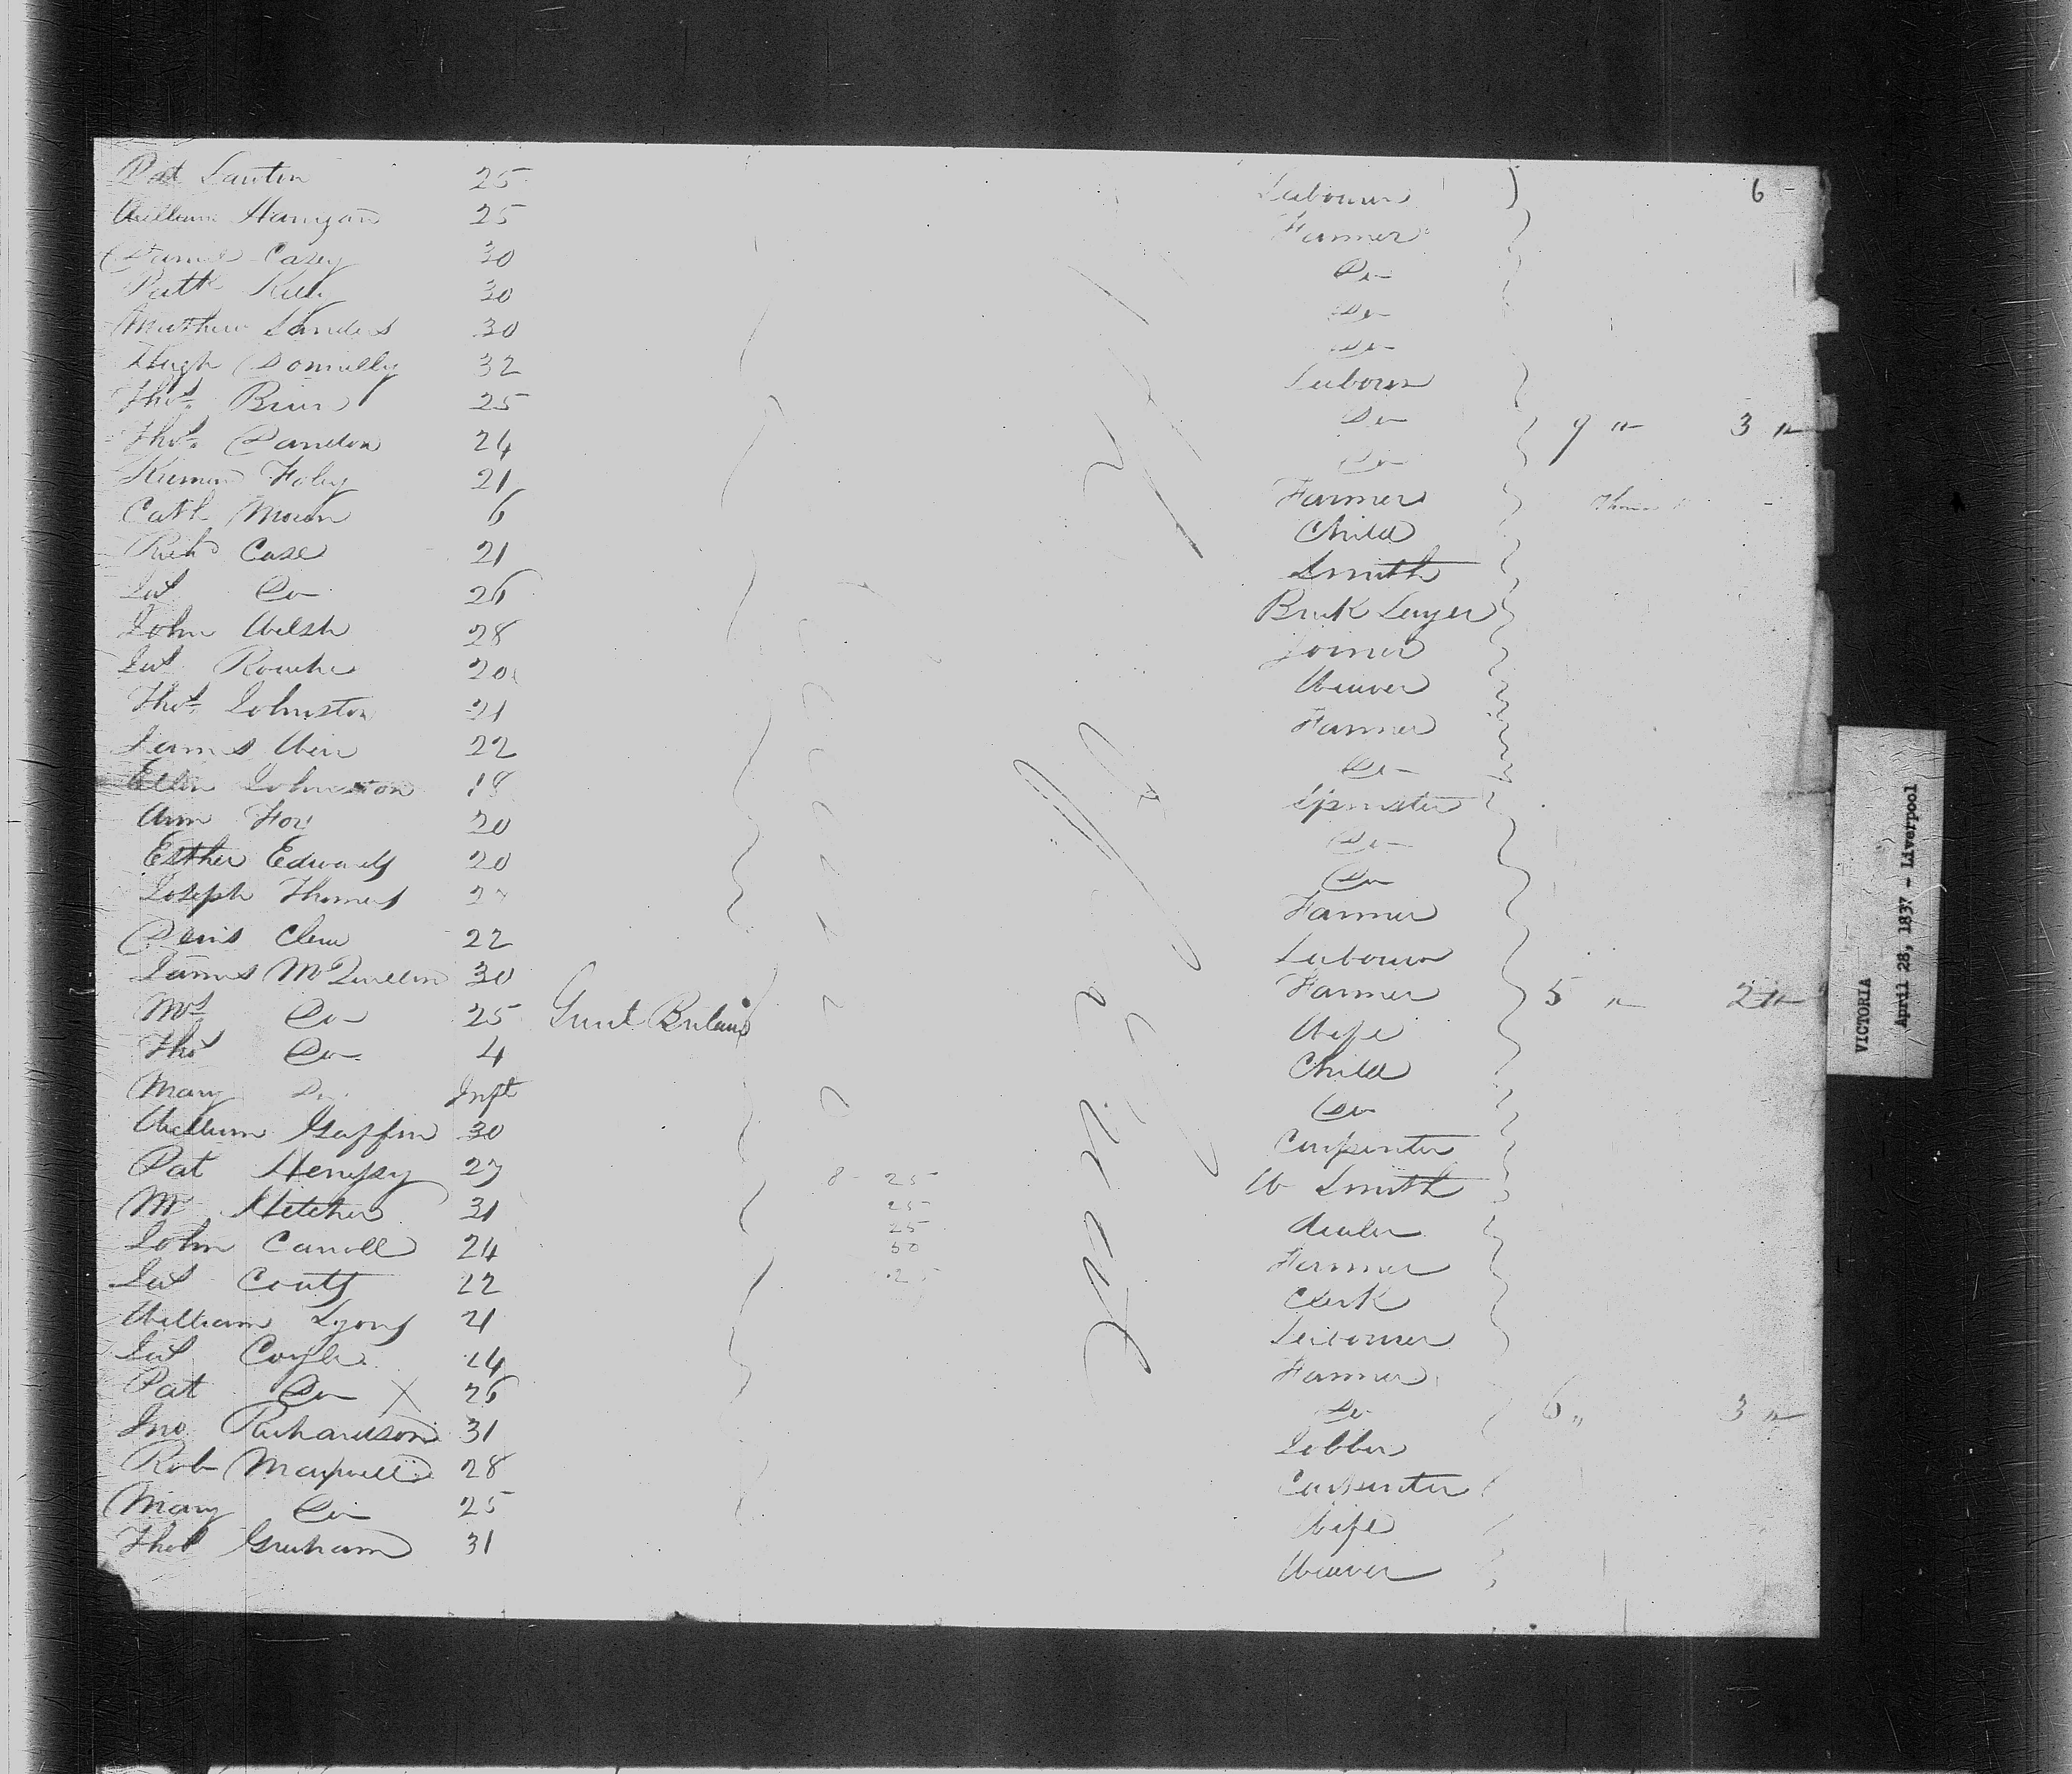 6
Pat Lanten 25 Labourer
William Hanigan 25 Farmer
Daniel Casey 30 Do
Patk Kelly 30 Do
Mathew Sanders 30 Do
Hugh Donnelly 32 Labourer
Thos. Brien 25 Do 9 " 3 "
Thos. Danelon 24 Do
Foley 21 Farmer
Cath Moran 6 Child
Richd Case 21 Smith
Jas Do 26 Brick Layer
John Welsh 28 Joiner
Jas Rourke 20 Weaver
Thos. Johnston 21 Farmer
James Weir 22 Do
Ellen Johnston 18 Spinster
Ann Foy 20 Do
Esther Edwards 20 Do
Joseph Thomas Farmer
Denis 22 Labourer
James McQuillen 30 Farmer 5 " 2 "
Mrs Do 25 Great Britain Wife
Thos Do 4 Child
Mary Do Inft Do
William Gaffin 30 Carpenter
Pat Hempsy 27 W Smith
8 - 25
M 31 Dealer
25
25
John Carroll 24 Farmer
50
Jas Coutts 22 Clerk
25
William Lyons 21 Labourer
Jas Coyle 24 Farmer
Pat Do X 26 Do 6 " 3 "
Jno Richardson 31 Jobber
Rob Maxwell 28 Carpenter
Mary Do 25 Wife
Thos Graham 31 Weaver
VICTORIA
April 28, 1837 - Liverpool